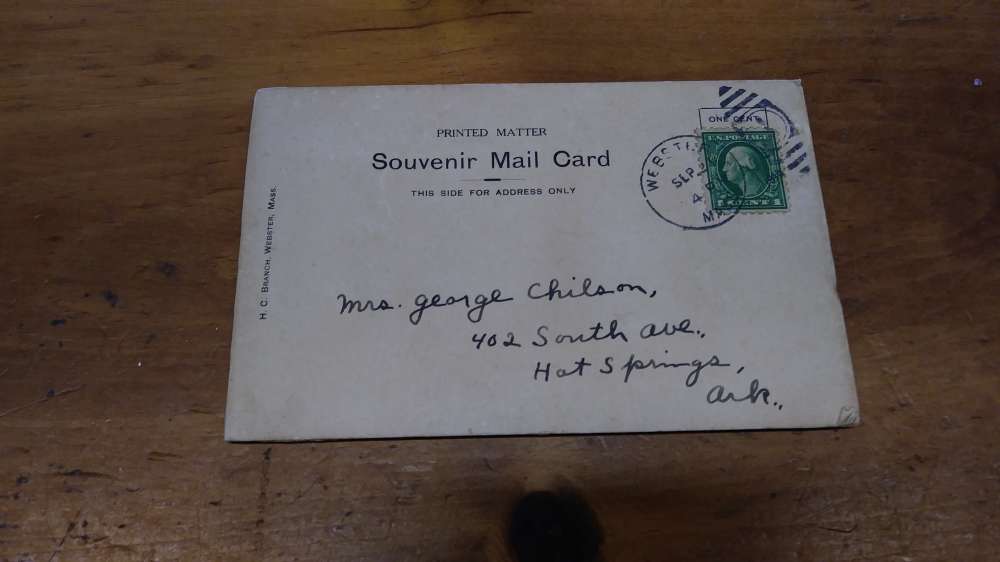 PRINTED MATTER
Souvenir Mail Card
THIS SIDE FOR ADDRESS ONLY
ONE CENT
U.S. POSTAGE
WEBSTE
SEP
4
MA
H. C. BRANCH, WEBSTER, MASS.
Mrs. George Chilson,
402 South Ave.,
Hot Springs,
Ark.,